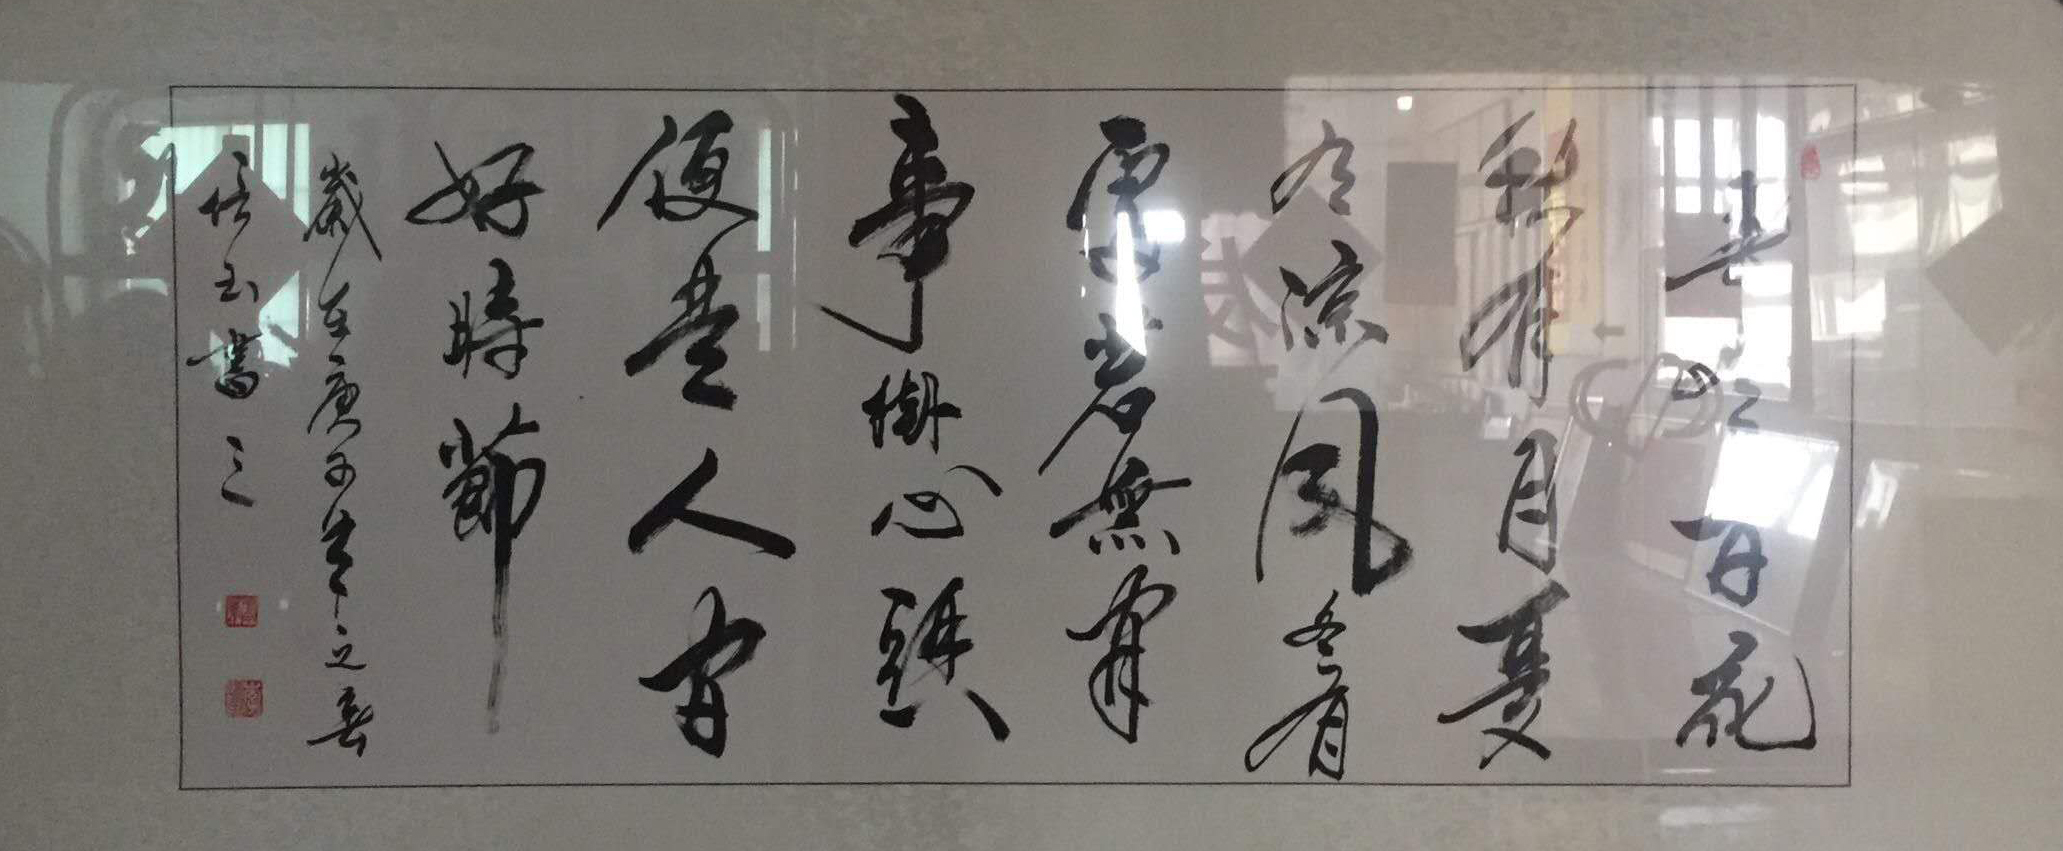 春有百花
秋有月夏
有涼風冬有
雪若無閒
事掛心頭
便是人間
好時節
歲在庚子年之春
玉書之